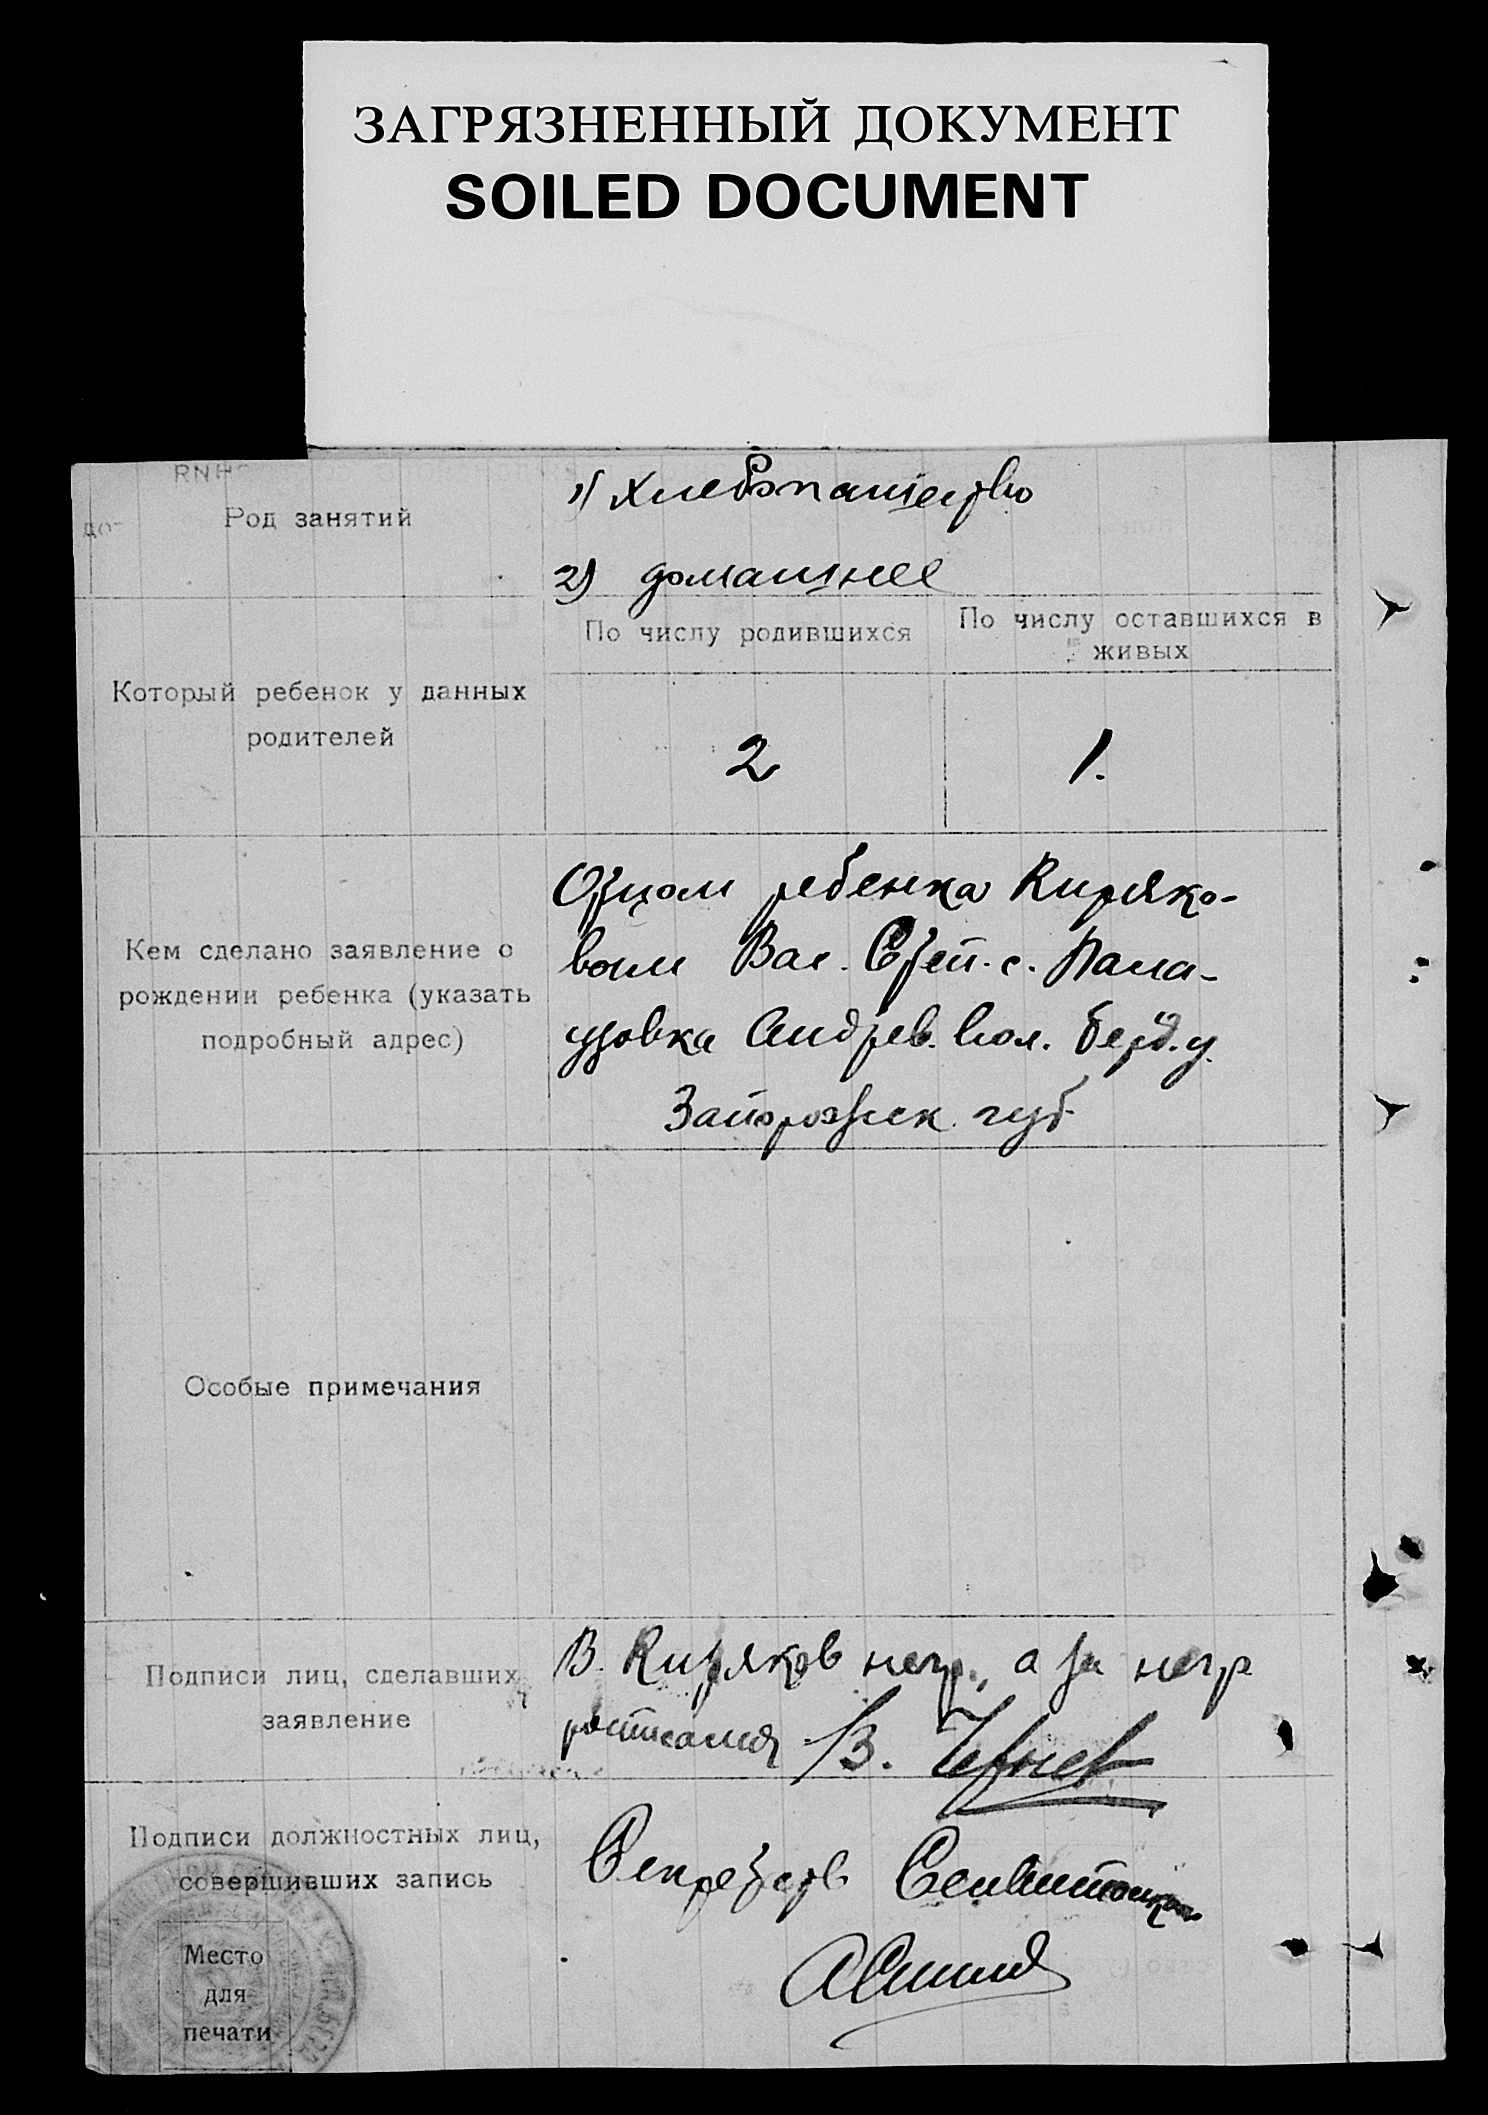 ЗАГРЯЗНЕННЫЙ ДОКУМЕНТ
SOILED DOCUMENT
Род занятий
1) Хлебопашество
2) домашнее
Который ребенок у данных
родителей
По числу родившихся
По числу оставшихся в
живых
2
1.
Кем сделано заявление о
рождении ребенка (указать
подробный адрес)
Отцом ребенка Киряко-
вым Вас. Степ. с.
Андрев. вол. Берд. у.
Запорожск. губ.
Особые примечания
Подписи лиц, сделавших
заявление
В. Киряков негр., а за негр
росписался В.
Подписи должностных лиц,
совершивших запись
Секретарь
Место
для
печати